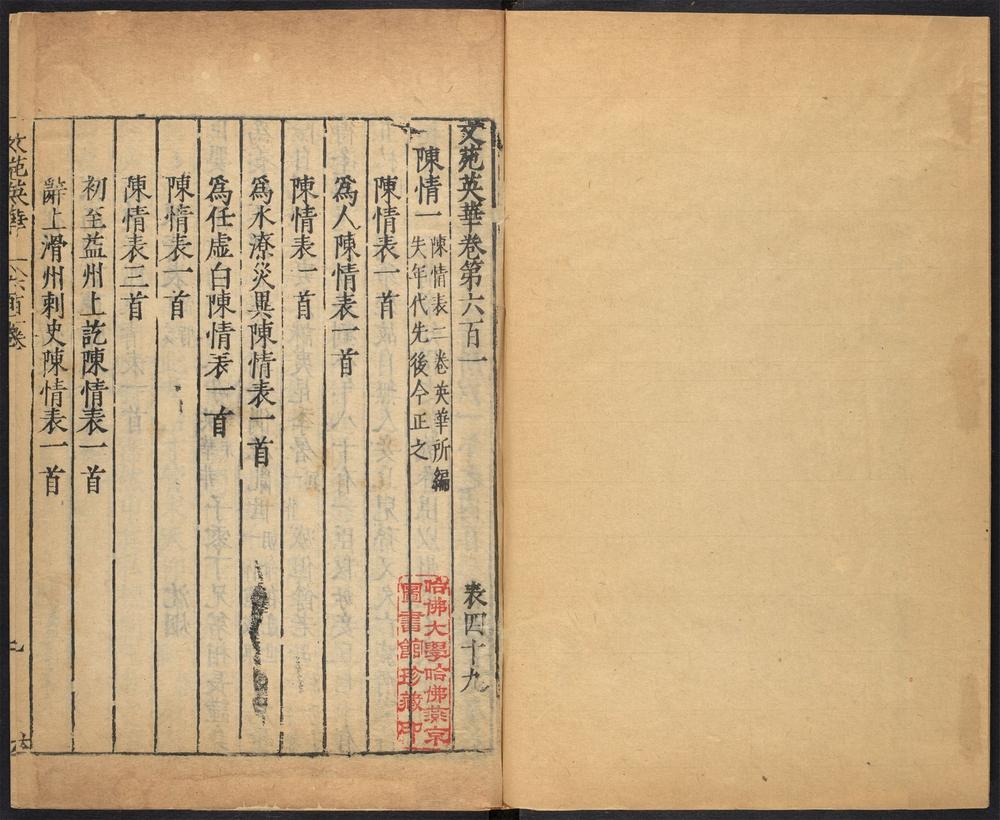 文苑英華卷第六百一 表四十九
陳情一 陳情表二卷英華所編
失年代先後今正之
陳情表一首
爲人陳情表一首
陳情表一首
爲水潦災異陳情表一首
爲任虛白陳情表一首
陳情表一首
陳情表三首
初至益州上訖陳情表一首
辭上滑州刺史陳情表一首
文苑英華
六百一卷
哈佛大學哈佛燕京
圖書館珍藏印